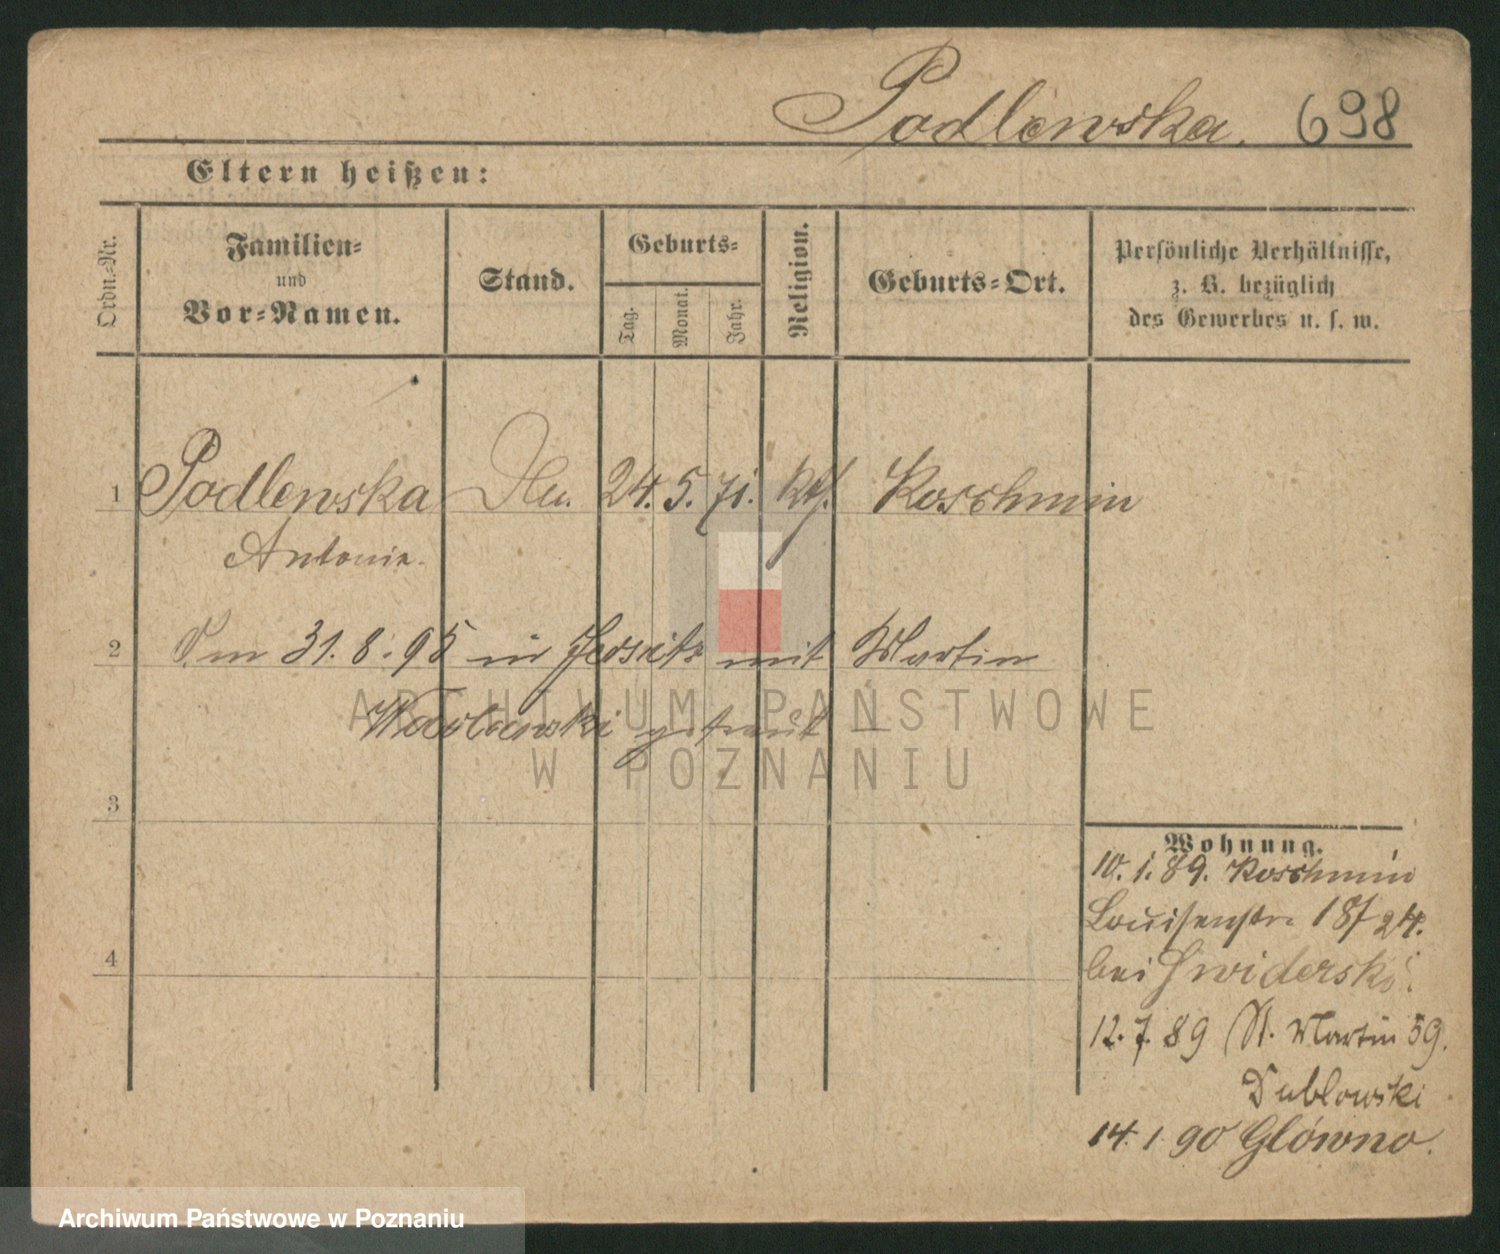 Podlewska. 698
Eltern heißen:
Ordn.-Nr.
Familien-
und
Vor-Namen.
Stand.
Geburts-
Tag.
Monat.
Jahr.
Religion.
Geburts-Ort.
Persönliche Verhältnisse,
z. B. bezüglich
des Gewerbes u. s. w.
1 Podlewska 24. 5. 71. kth. Koschmin
Antonie.
2 Am 31.8.95 in Jersitz mit Martin
getraut
3
4
Wohnung.
10. 1. 89. Koschmin
Louisenstr. 18/24.
bei Swiderski.
12. 7. 89 St. Martin 59.
Dublowski
14. 1 90 Główno.
ARCHIWUM PAŃSTWOWE
W POZNANIU
Archiwum Państwowe w Poznaniu